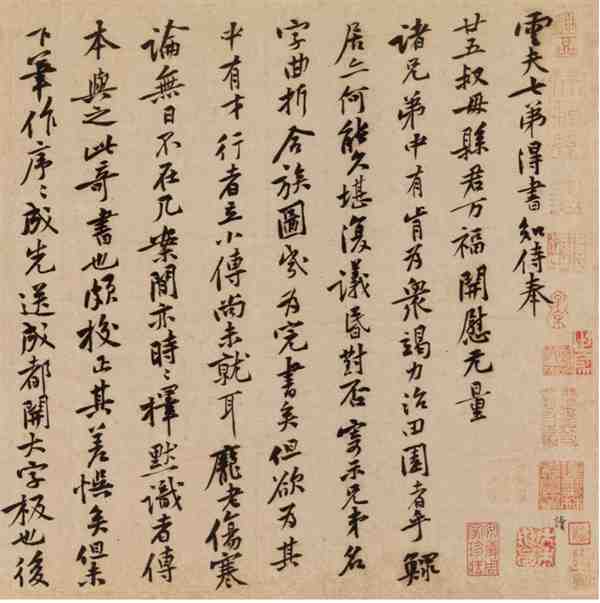 雲夫七弟得書知侍奉
廿五叔母縣君万福開慰无量
諸兄弟中有肯為衆竭力治田園者乎鰥
居亦何能久堪復議昏對否寄示兄弟名
字曲折合族圖幾為完書矣但欲為其
中有才行者立小傳尚未就耳龐老傷寒
論無日不在几案間亦時〻擇默識者傳
本與之此奇書也頗挍正其差悞矣但未
下筆作序〻成先送成都開大字板也後